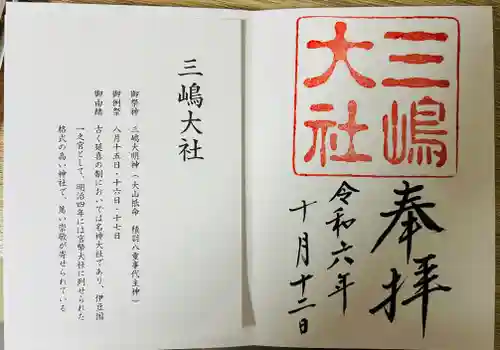 三嶋
大社
奉拝
令和六年
十月十二日
三嶋大社
御祭神　三嶋大明神（大山祇命　積羽八重事代主神）
御例祭　八月十五日・十六日・十七日
御由緒　古く延喜の制においては名神大社であり、伊豆国
一之宮として、明治四年には官幣大社に列せられた
格式の高い神社で、篤い崇敬が寄せられている